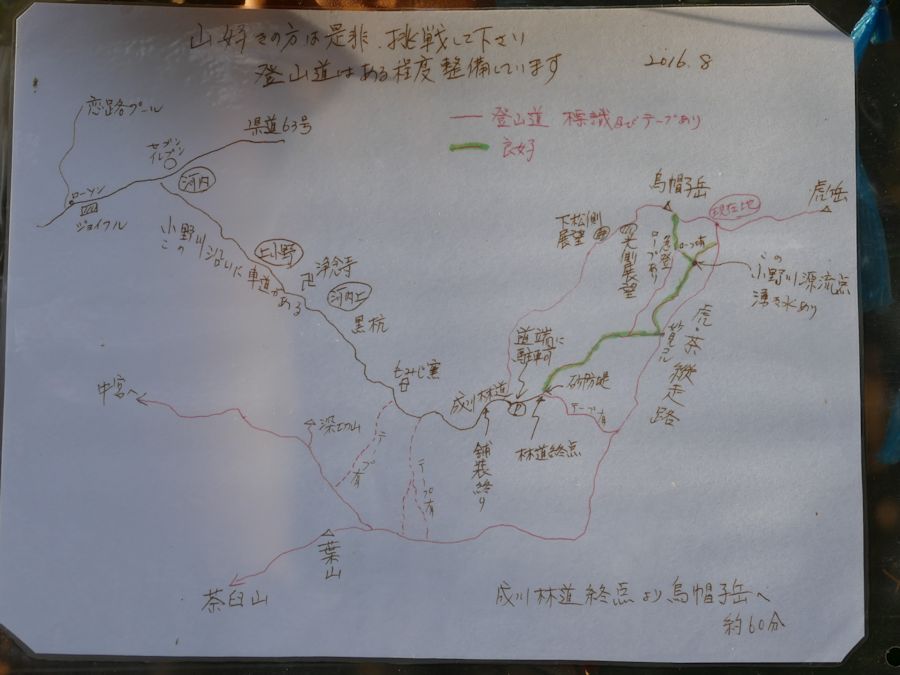 山好きの方は是非、挑戦して下さい
登山道はある程度整備しています
2016.8
登山道 標識及びテープあり
良好
恋路プール
県道63号
セブンイレブン
河内
ローソン
ジョイフル
この小野川沿いに車道がある
上小野
浄念寺
卍
河内上
黒杭
もみじ窯
成川林道
道端に
駐車可
P
砂防堤
林道終点
舗装終り
テープ有
烏帽子岳
現在地
虎ヶ岳
下松側
展望
光側展望
急登
ロープあり
ロープ有
この
小野川源流点
湧き水あり
虎・茶縦走路
中宮へ
深切山
テープ有
テープ有
葉山
茶臼山
成川林道終点より烏帽子岳へ
約60分